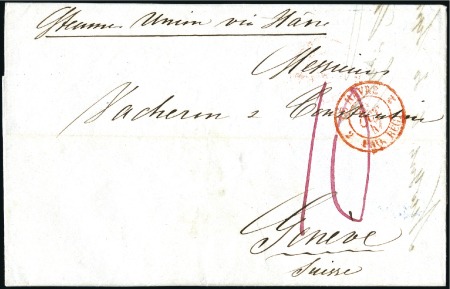 Steamer Union via Havre
Messieurs
Vacheron & Constantin
10
Genève
Suisse